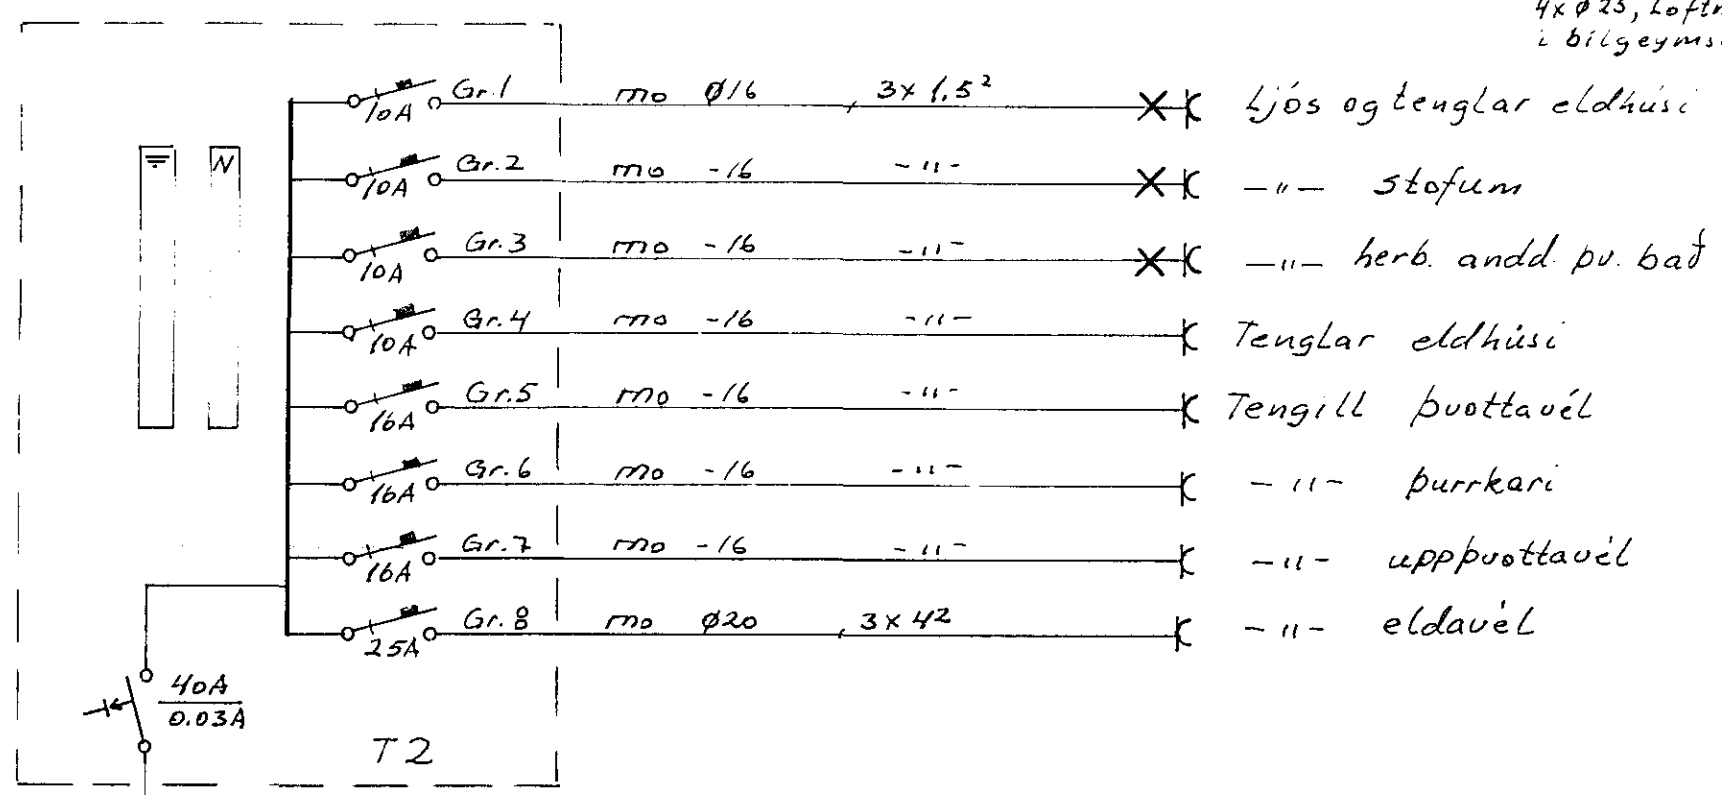 4x ø25, Loftn
i bílgeyms
Gr.1 mo ø16 , 3x 1.5² Ljós og tenglar eldhúsi
10A
N
Gr.2 mo -16 -"- -"- stofum
10A
Gr.3 mo -16 -"- -"- herb. andd. þv. bað
10A
Gr.4 mo -16 -"- Tenglar eldhúsi
10A
Gr.5 mo -16 -"- Tengill þvottavél
16A
Gr.6 mo -16 -"- -"- þurrkari
16A
Gr.7 mo -16 -"- -"- uppþvottavél
16A
Gr.8 mo ø20 , 3x4² -"- eldavél
25A
40A
0.03A
T2